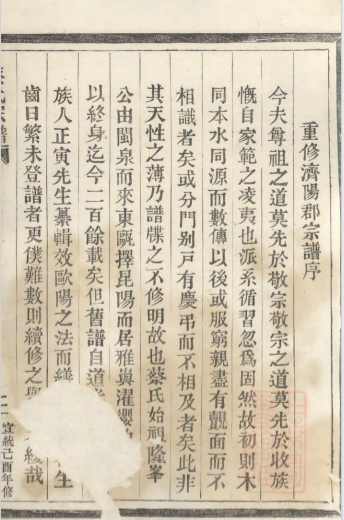 重修濟陽郡宗譜序
今夫尊祖之道莫先於敬宗敬宗之道莫先於收族
慨自家範之凌夷也派系循習忽爲固然故初則木
同本水同源而數傳以後或服窮親盡有覿面而不
相識者矣或分門别戸有慶弔而不相及者矣此非
其天性之薄乃譜牒之不修明故也蔡氏始祖隆峯
公由閩泉而來東甌擇昆陽而居雅與濯纓
以終身迄今二百餘載矣但舊譜自道
族人正寅先生纂輯效歐陽之法而 生
齒日繁未登譜者更僕難數則續修之 緩哉
二 宣統己酉年修
氏宗譜